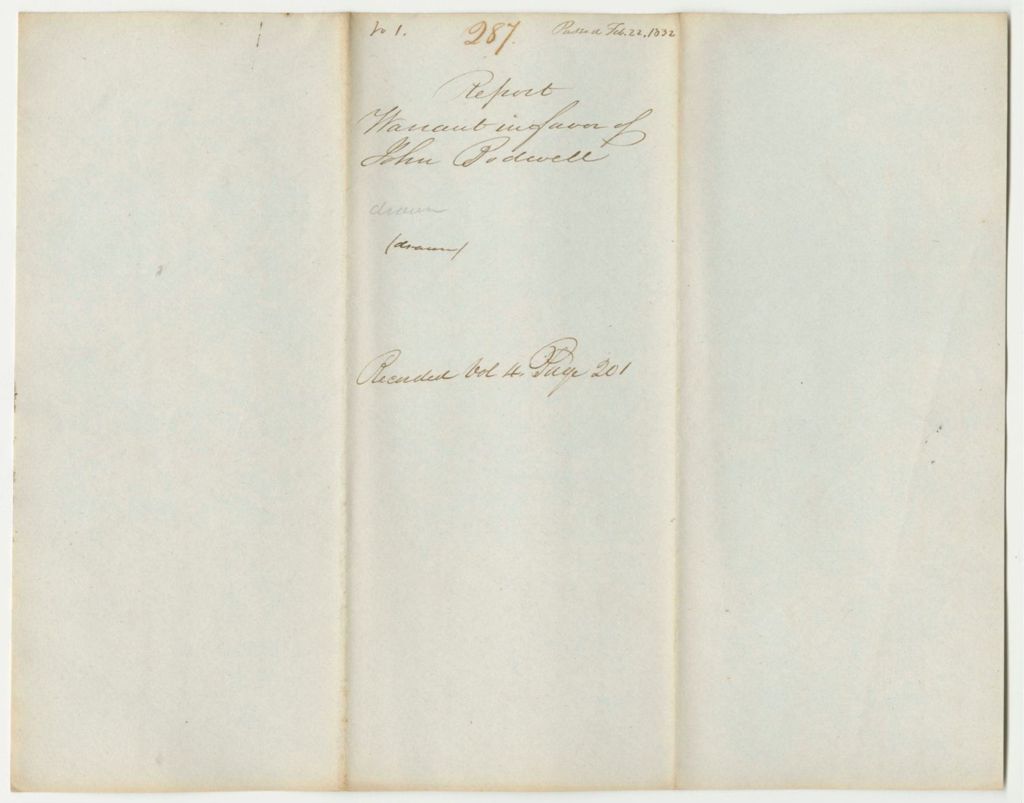 No 1. 287. Passed Feb. 22, 1832
Report
Warrant in favor of
John Bodwell
drawn
(drawn)
Recorded Vol 4. Page 201